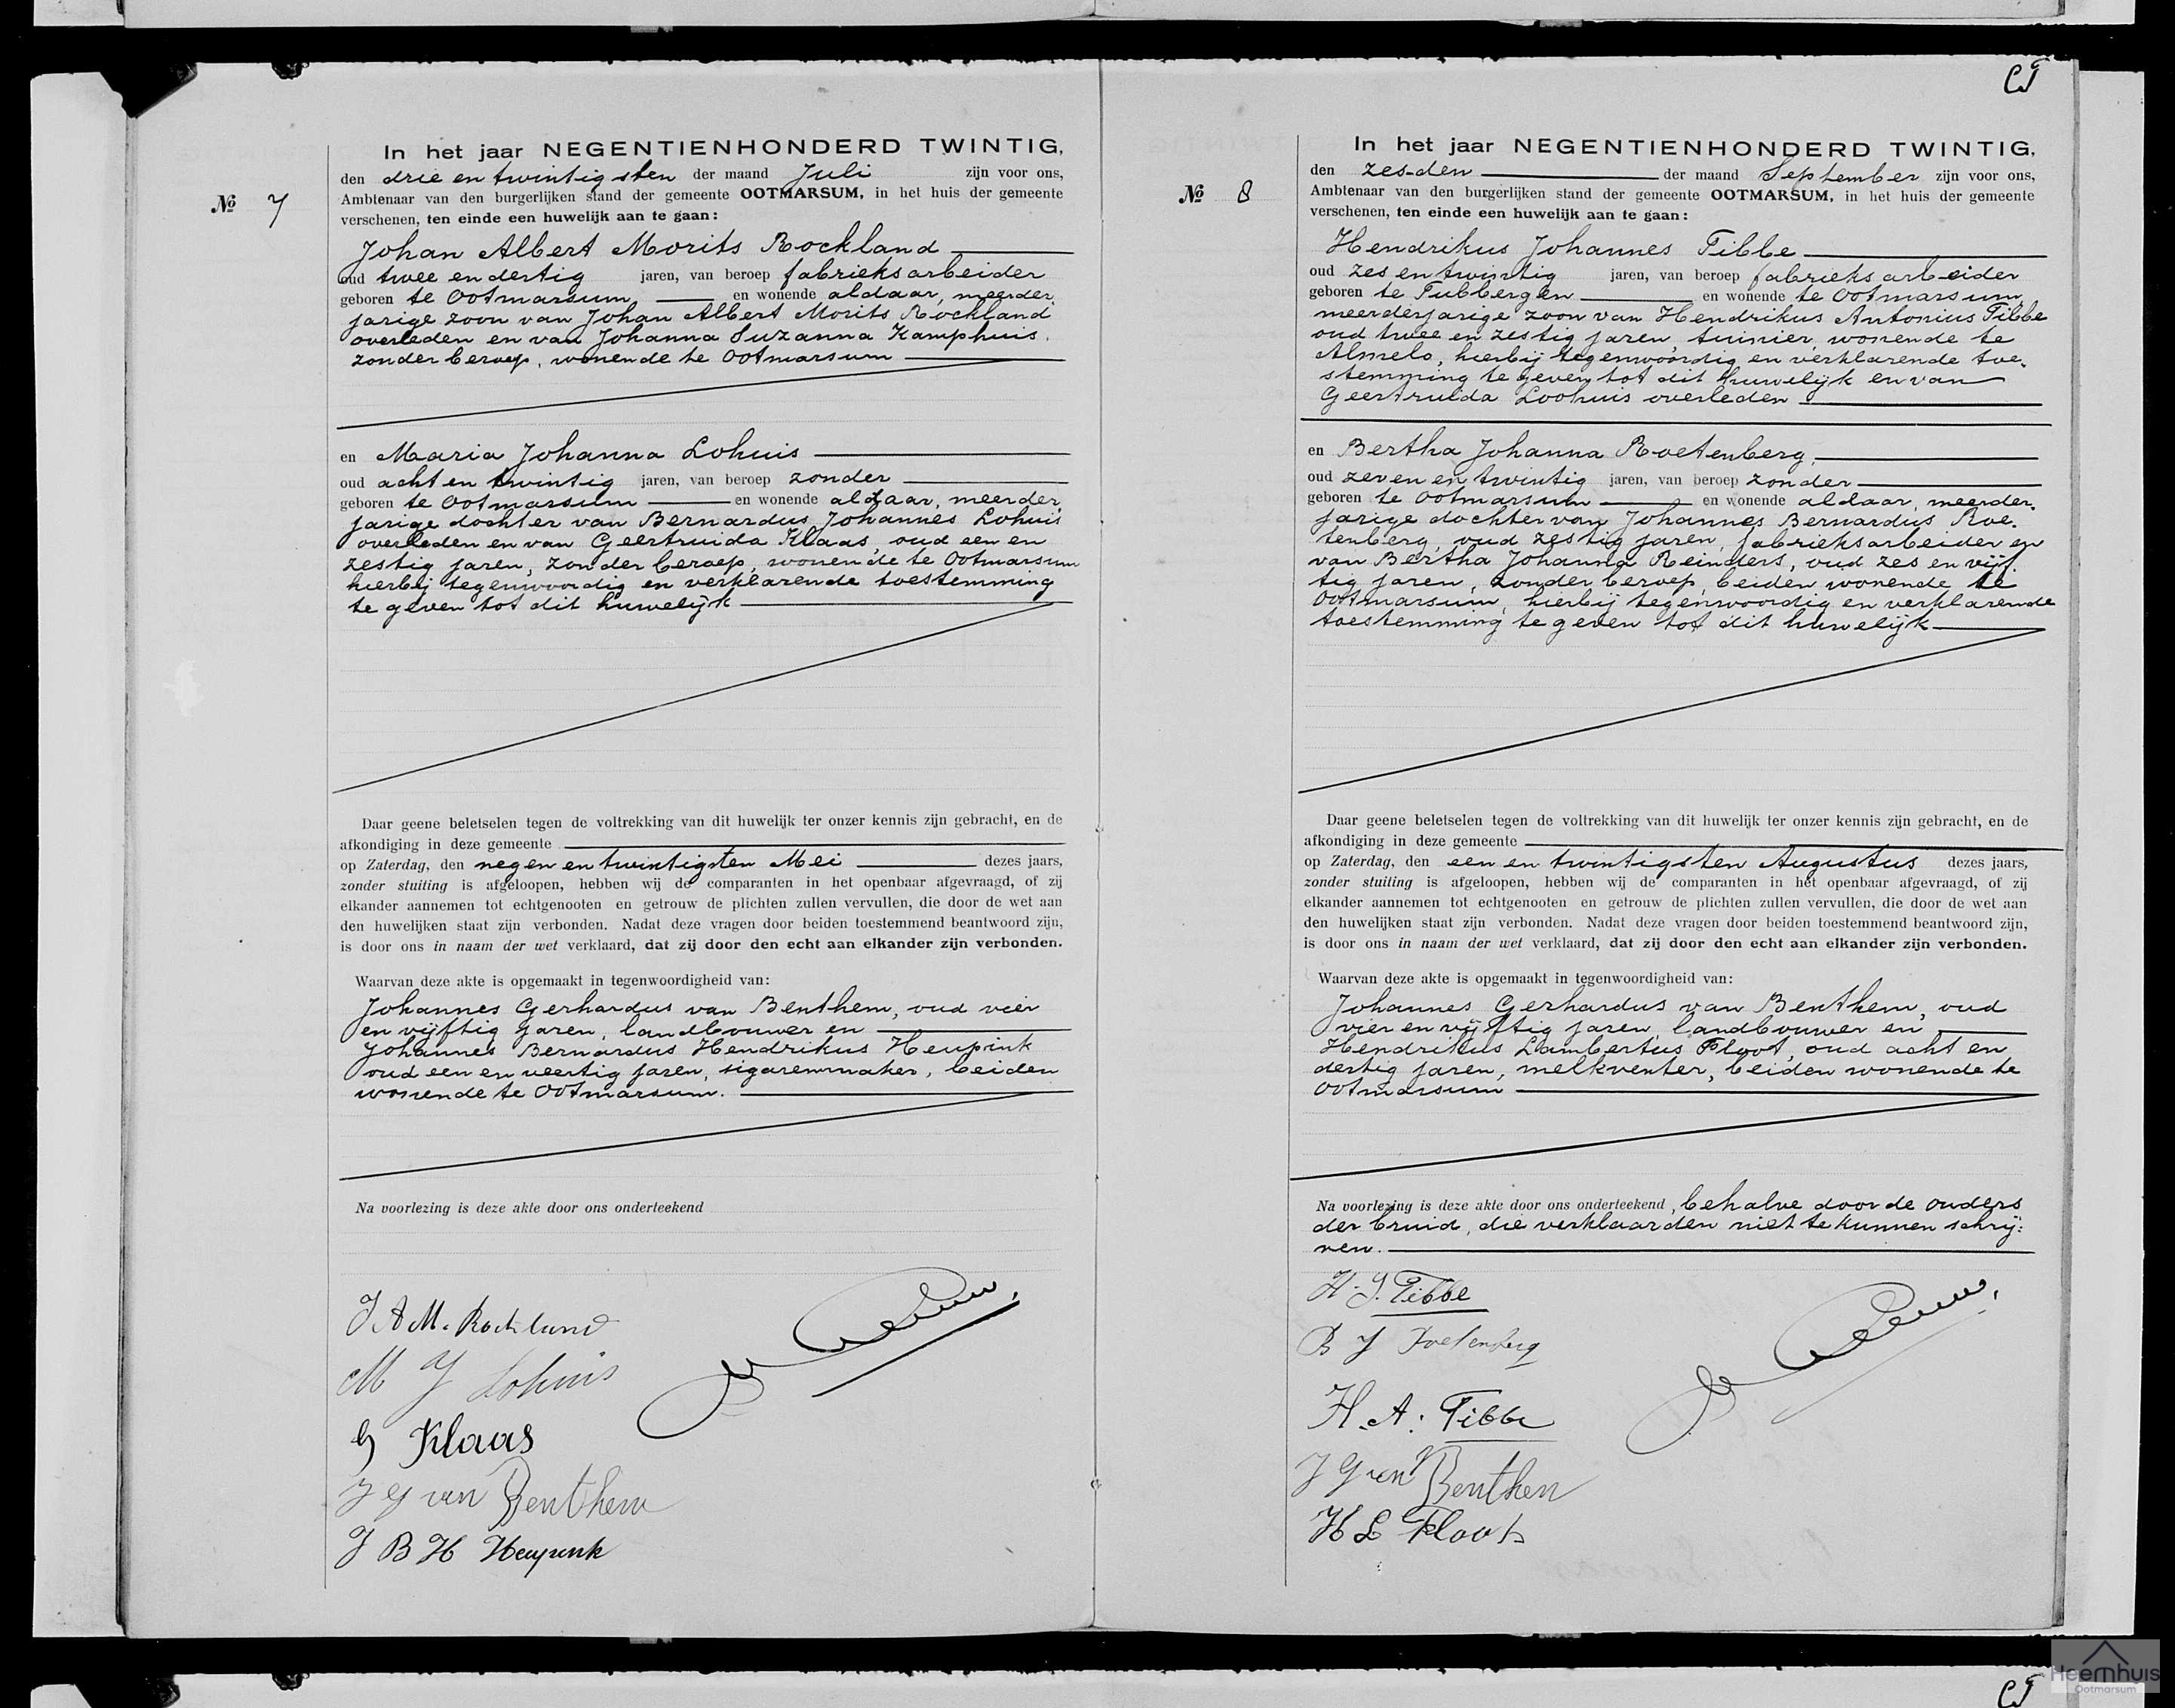 In het jaar NEGENTIENHONDERD TWINTIG,
den drie en twintigsten der maand Juli zijn voor ons,
Nº 7
Ambtenaar van den burgerlijken stand der gemeente OOTMARSUM, in het huis der gemeente
verschenen, ten einde een huwelijk aan te gaan:
Johan Albert Morits Rockland
oud twee en dertig jaren, van beroep fabrieksarbeider
geboren te Ootmarsum en wonende aldaar, meerder,
jarige zoon van Johan Albert Morits Rockland
overleden en van Johanna Suzanna Kamphuis.
zonder beroep, wonende te Ootmarsum
en Maria Johanna Lohuis
oud acht en twintig jaren, van beroep zonder
geboren te Ootmarsum en wonende aldaar, meerder,
jarige dochter van Bernardus Johannes Lohuis
overleden en van Geertruida Klaas, oud een en
zestig jaren, zonder beroep, wonende te Ootmarsum
hierbij tegenwoordig en verklarende toestemming
te geven tot dit huwelijk
Daar geene beletselen tegen de voltrekking van dit huwelijk ter onzer kennis zijn gebracht, en de
afkondiging in deze gemeente
op Zaterdag, den negen en twintigsten Mei dezes jaars,
zonder stuiting is afgeloopen, hebben wij de comparanten in het openbaar afgevraagd, of zij
elkander aannemen tot echtgenooten en getrouw de plichten zullen vervullen, die door de wet aan
den huwelijken staat zijn verbonden. Nadat deze vragen door beiden toestemmend beantwoord zijn,
is door ons in naam der wet verklaard, dat zij door den echt aan elkander zijn verbonden.
Waarvan deze akte is opgemaakt in tegenwoordigheid van:
Johannes Gerhardus van Benthem, oud vier
en vijftig jaren, landbouwer en
Johannes Bernardus Hendrikus Heupink
oud een en veertig jaren, sigarenmaker, beiden
wonende te Ootmarsum.
Na voorlezing is deze akte door ons onderteekend
J A M. Rockland
M J Lohuis
G Klaas
J G van Benthem
J B H Heupink
CT
In het jaar NEGENTIENHONDERD TWINTIG,
den zesden der maand September zijn voor ons,
Nº 8
Ambtenaar van den burgerlijken stand der gemeente OOTMARSUM, in het huis der gemeente
verschenen, ten einde een huwelijk aan te gaan:
Hendrikus Johannes Tibbe
oud zes en twintig jaren, van beroep fabrieksarbeider
geboren te Tubbergen en wonende te Ootmarsum
meerderjarige zoon van Hendrikus Antonius Tibbe
oud twee en zestig jaren, tuinier, wonende te
Almelo, hierbij tegenwoordig en verklarende toe-
stemming te geven tot dit huwelijk en van
Geertruida Loohuis overleden
en Bertha Johanna Roetenberg,
oud zeven en twintig jaren, van beroep zonder
geboren te Ootmarsum en wonende aldaar, meerder,
jarige dochter van Johannes Bernardus Roe-
tenberg, oud zestig jaren, fabrieksarbeider en
van Bertha Johanna Reinders, oud zes en vijf
tig jaren, zonder beroep, beiden wonende te
Ootmarsum, hierbij tegenwoordig en verklarende
toestemming te geven tot dit huwelijk
Daar geene beletselen tegen de voltrekking van dit huwelijk ter onzer kennis zijn gebracht, en de
afkondiging in deze gemeente
op Zaterdag, den een en twintigsten Augustus dezes jaars,
zonder stuiting is afgeloopen, hebben wij de comparanten in het openbaar afgevraagd, of zij
elkander aannemen tot echtgenooten en getrouw de plichten zullen vervullen, die door de wet aan
den huwelijken staat zijn verbonden. Nadat deze vragen door beiden toestemmend beantwoord zijn,
is door ons in naam der wet verklaard, dat zij door den echt aan elkander zijn verbonden.
Waarvan deze akte is opgemaakt in tegenwoordigheid van:
Johannes Gerhardus van Benthem, oud
vier en vijftig jaren, landbouwer en
Hendrikus Lambertus Floot, oud acht en
dertig jaren, melkventer, beiden wonende te
Ootmarsum
Na voorlezing is deze akte door ons onderteekend, behalve door de ouders
der bruid, die verklaarden niet te kunnen schrij:
ven.
H. J. Tibbe
B J Roetenberg
H. A. Tibbe
J G van Benthem
H L Floot
Heemhuis
Ootmarsum
CT